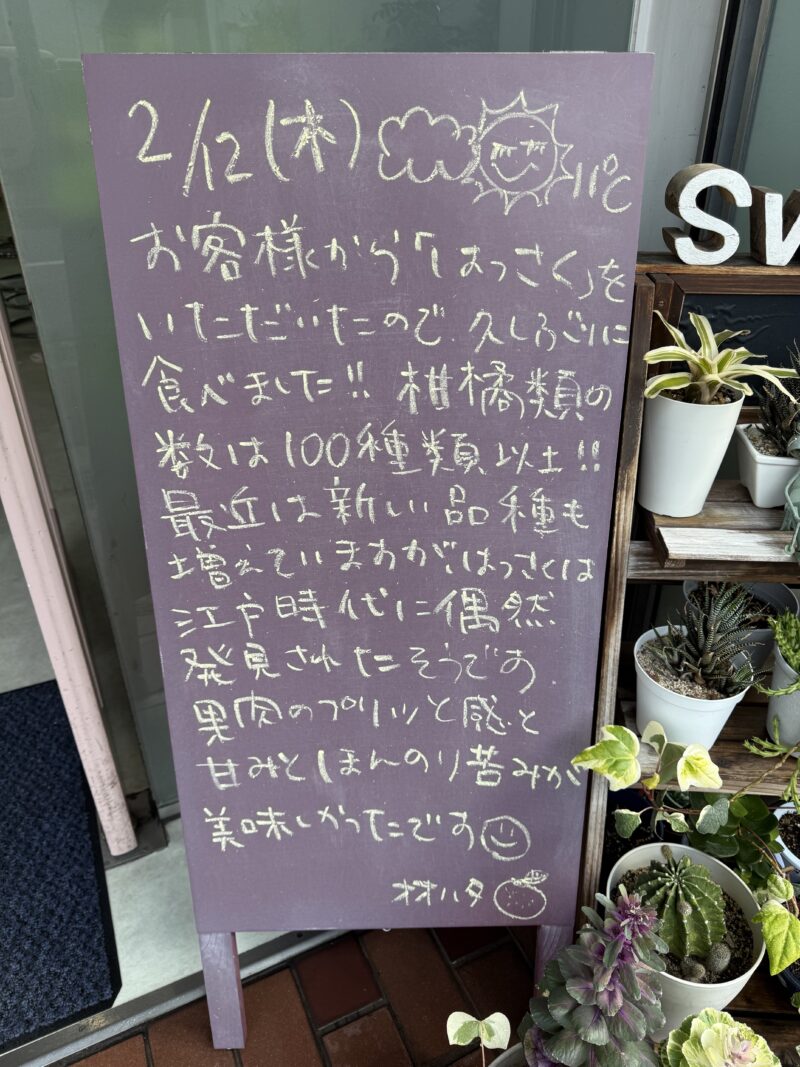 2/12(木) 11℃
お客様から「はっさく」を
いただいたので、久しぶりに
食べました!! 柑橘類の
数は100種類以上!!
最近は新しい品種も
増えていますが、はっさくは
江戸時代に偶然
発見されたそうです。
果肉のプリッと感と
甘みとほんのり苦みが
美味しかったです
オオハタ
SW